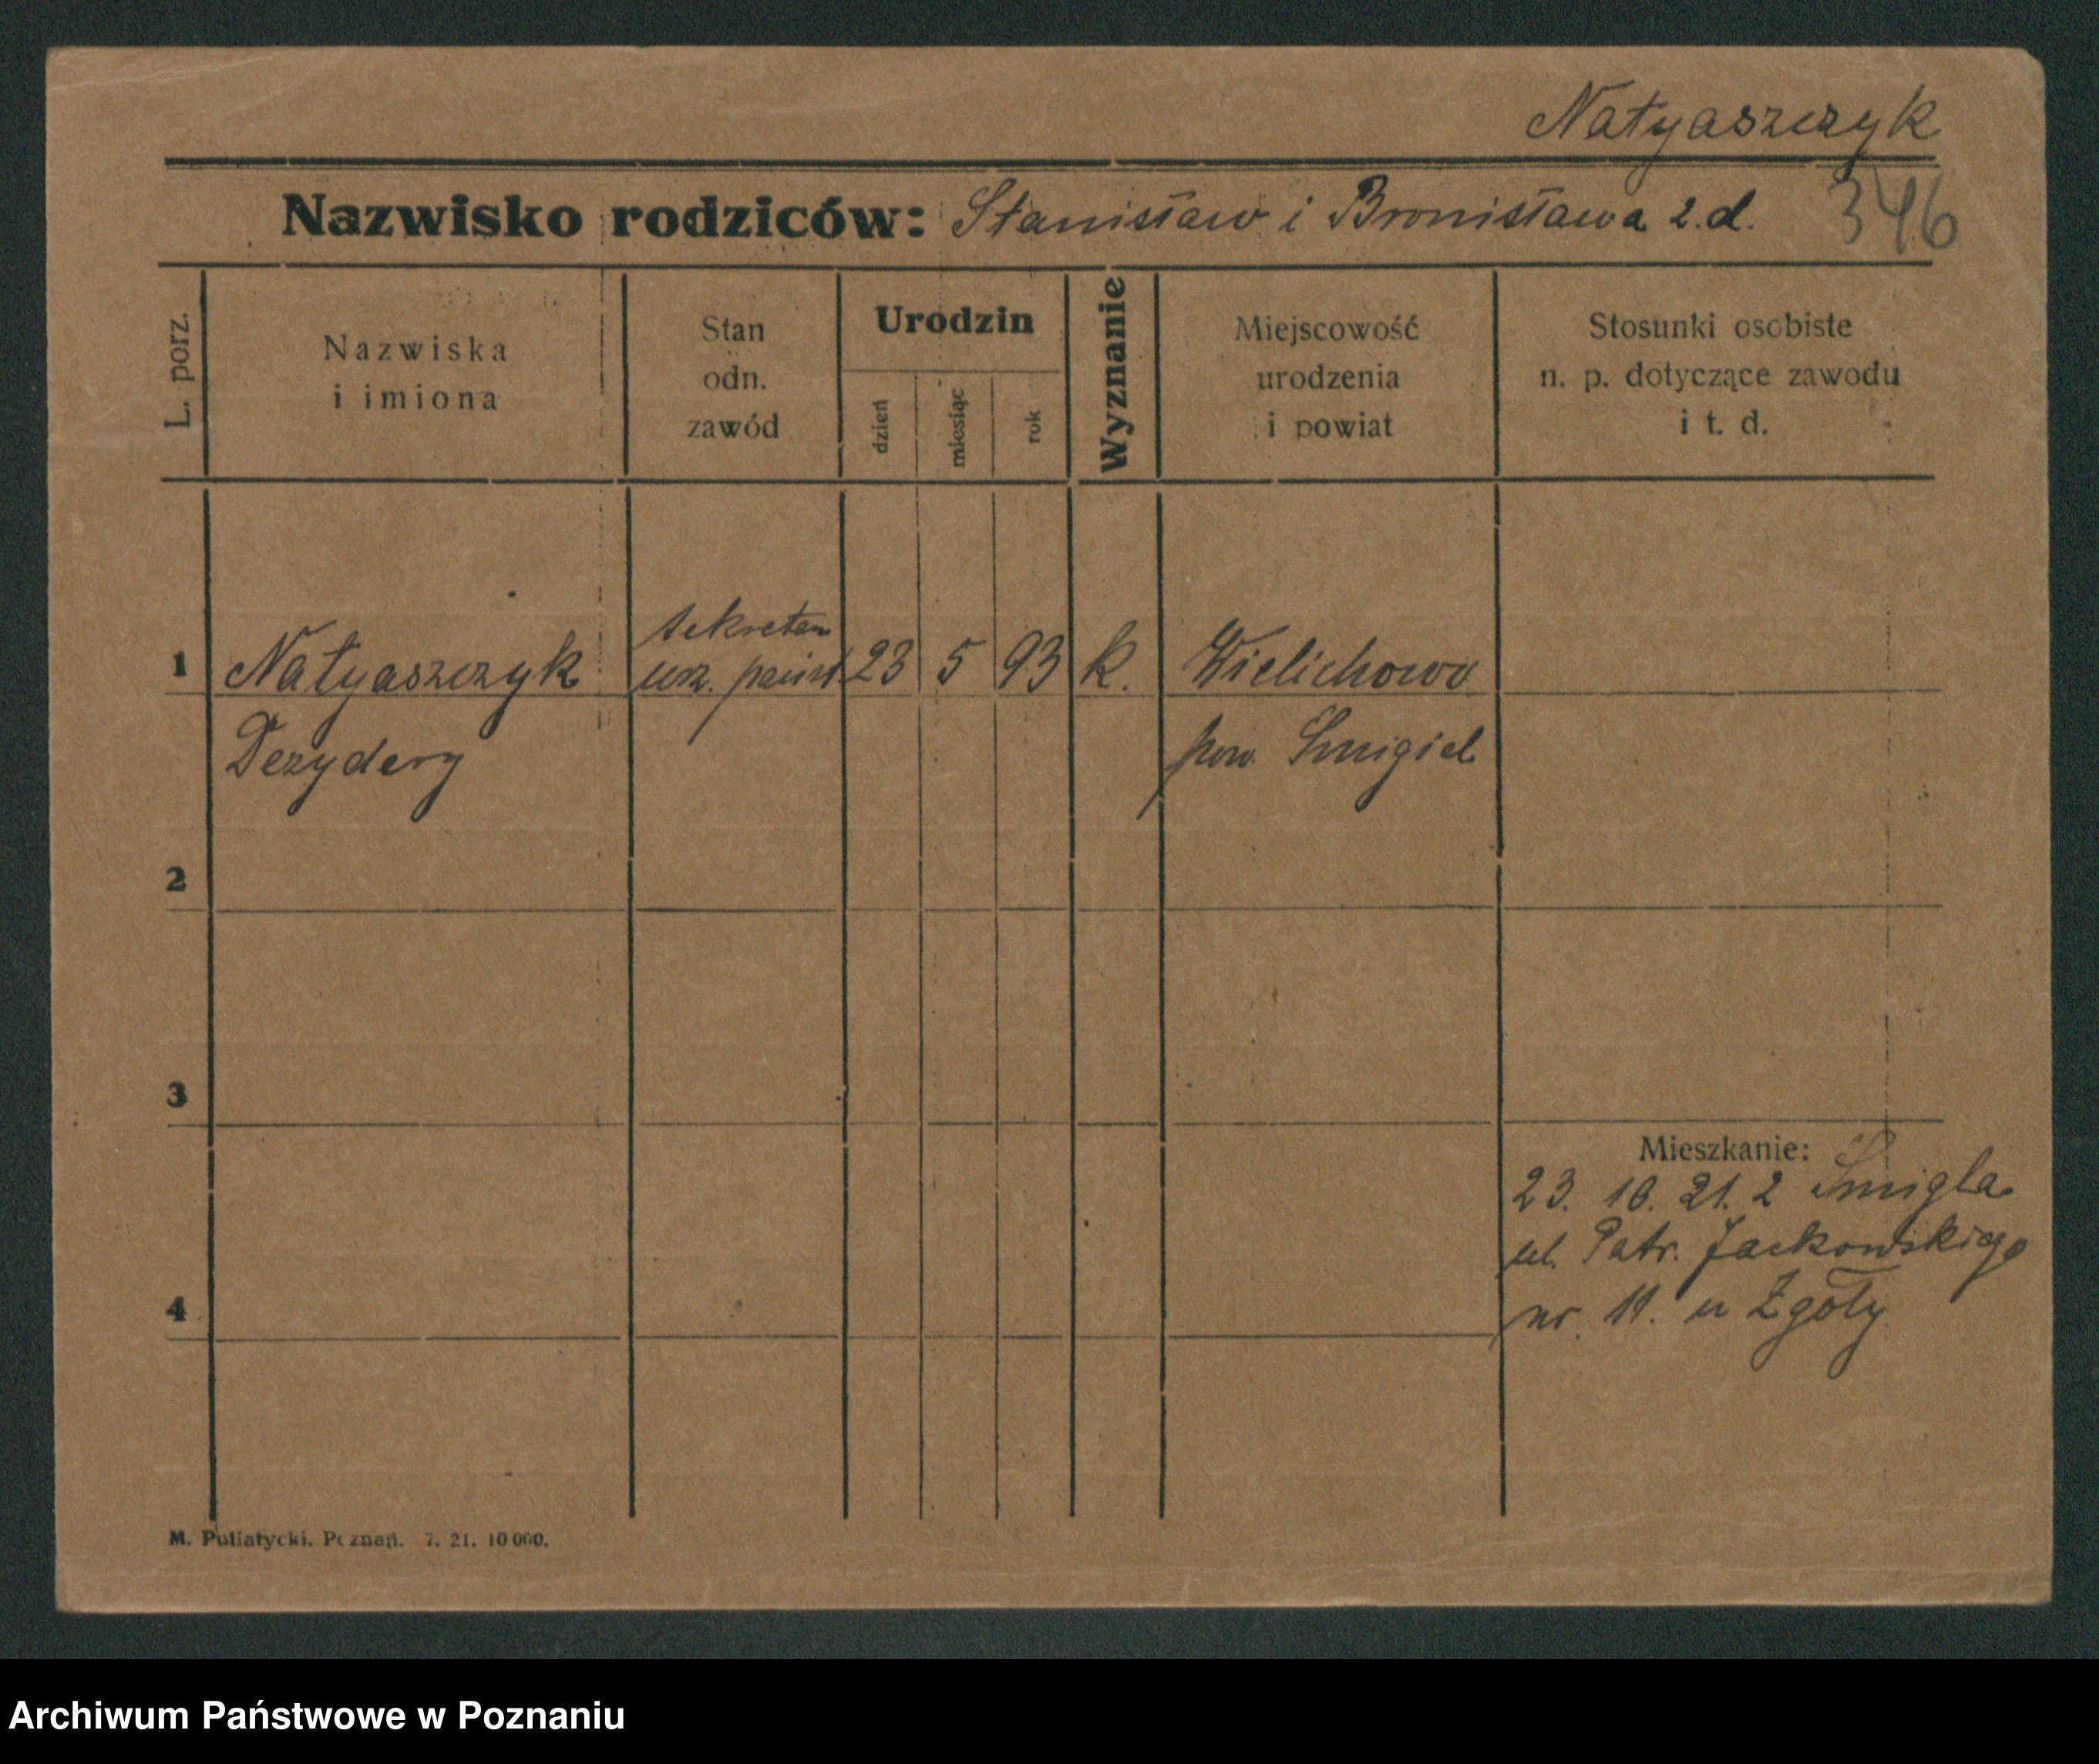 Natyaszczyk
Nazwisko rodziców: Stanisław i Bronisława z.d. 346
L. porz.
Nazwiska
i imiona
Stan
odn.
zawód
Urodzin
dzień
miesiąc
rok
Wyznanie
Miejscowość
urodzenia
i powiat
Stosunki osobiste
n. p. dotyczące zawodu
i t. d.
sekretarz
1 Natyaszczyk urz. państ 23 5 93 k. Wielichowo
Dezydery pow. Smigiel
2
3
Mieszkanie:
23. 10. 21. z Smigla
ul. Patr. Jackowskiego
nr. 11. u Zgoły
4
M. Putiatycki. Poznań. 7. 21. 10 000.
Archiwum Państwowe w Poznaniu